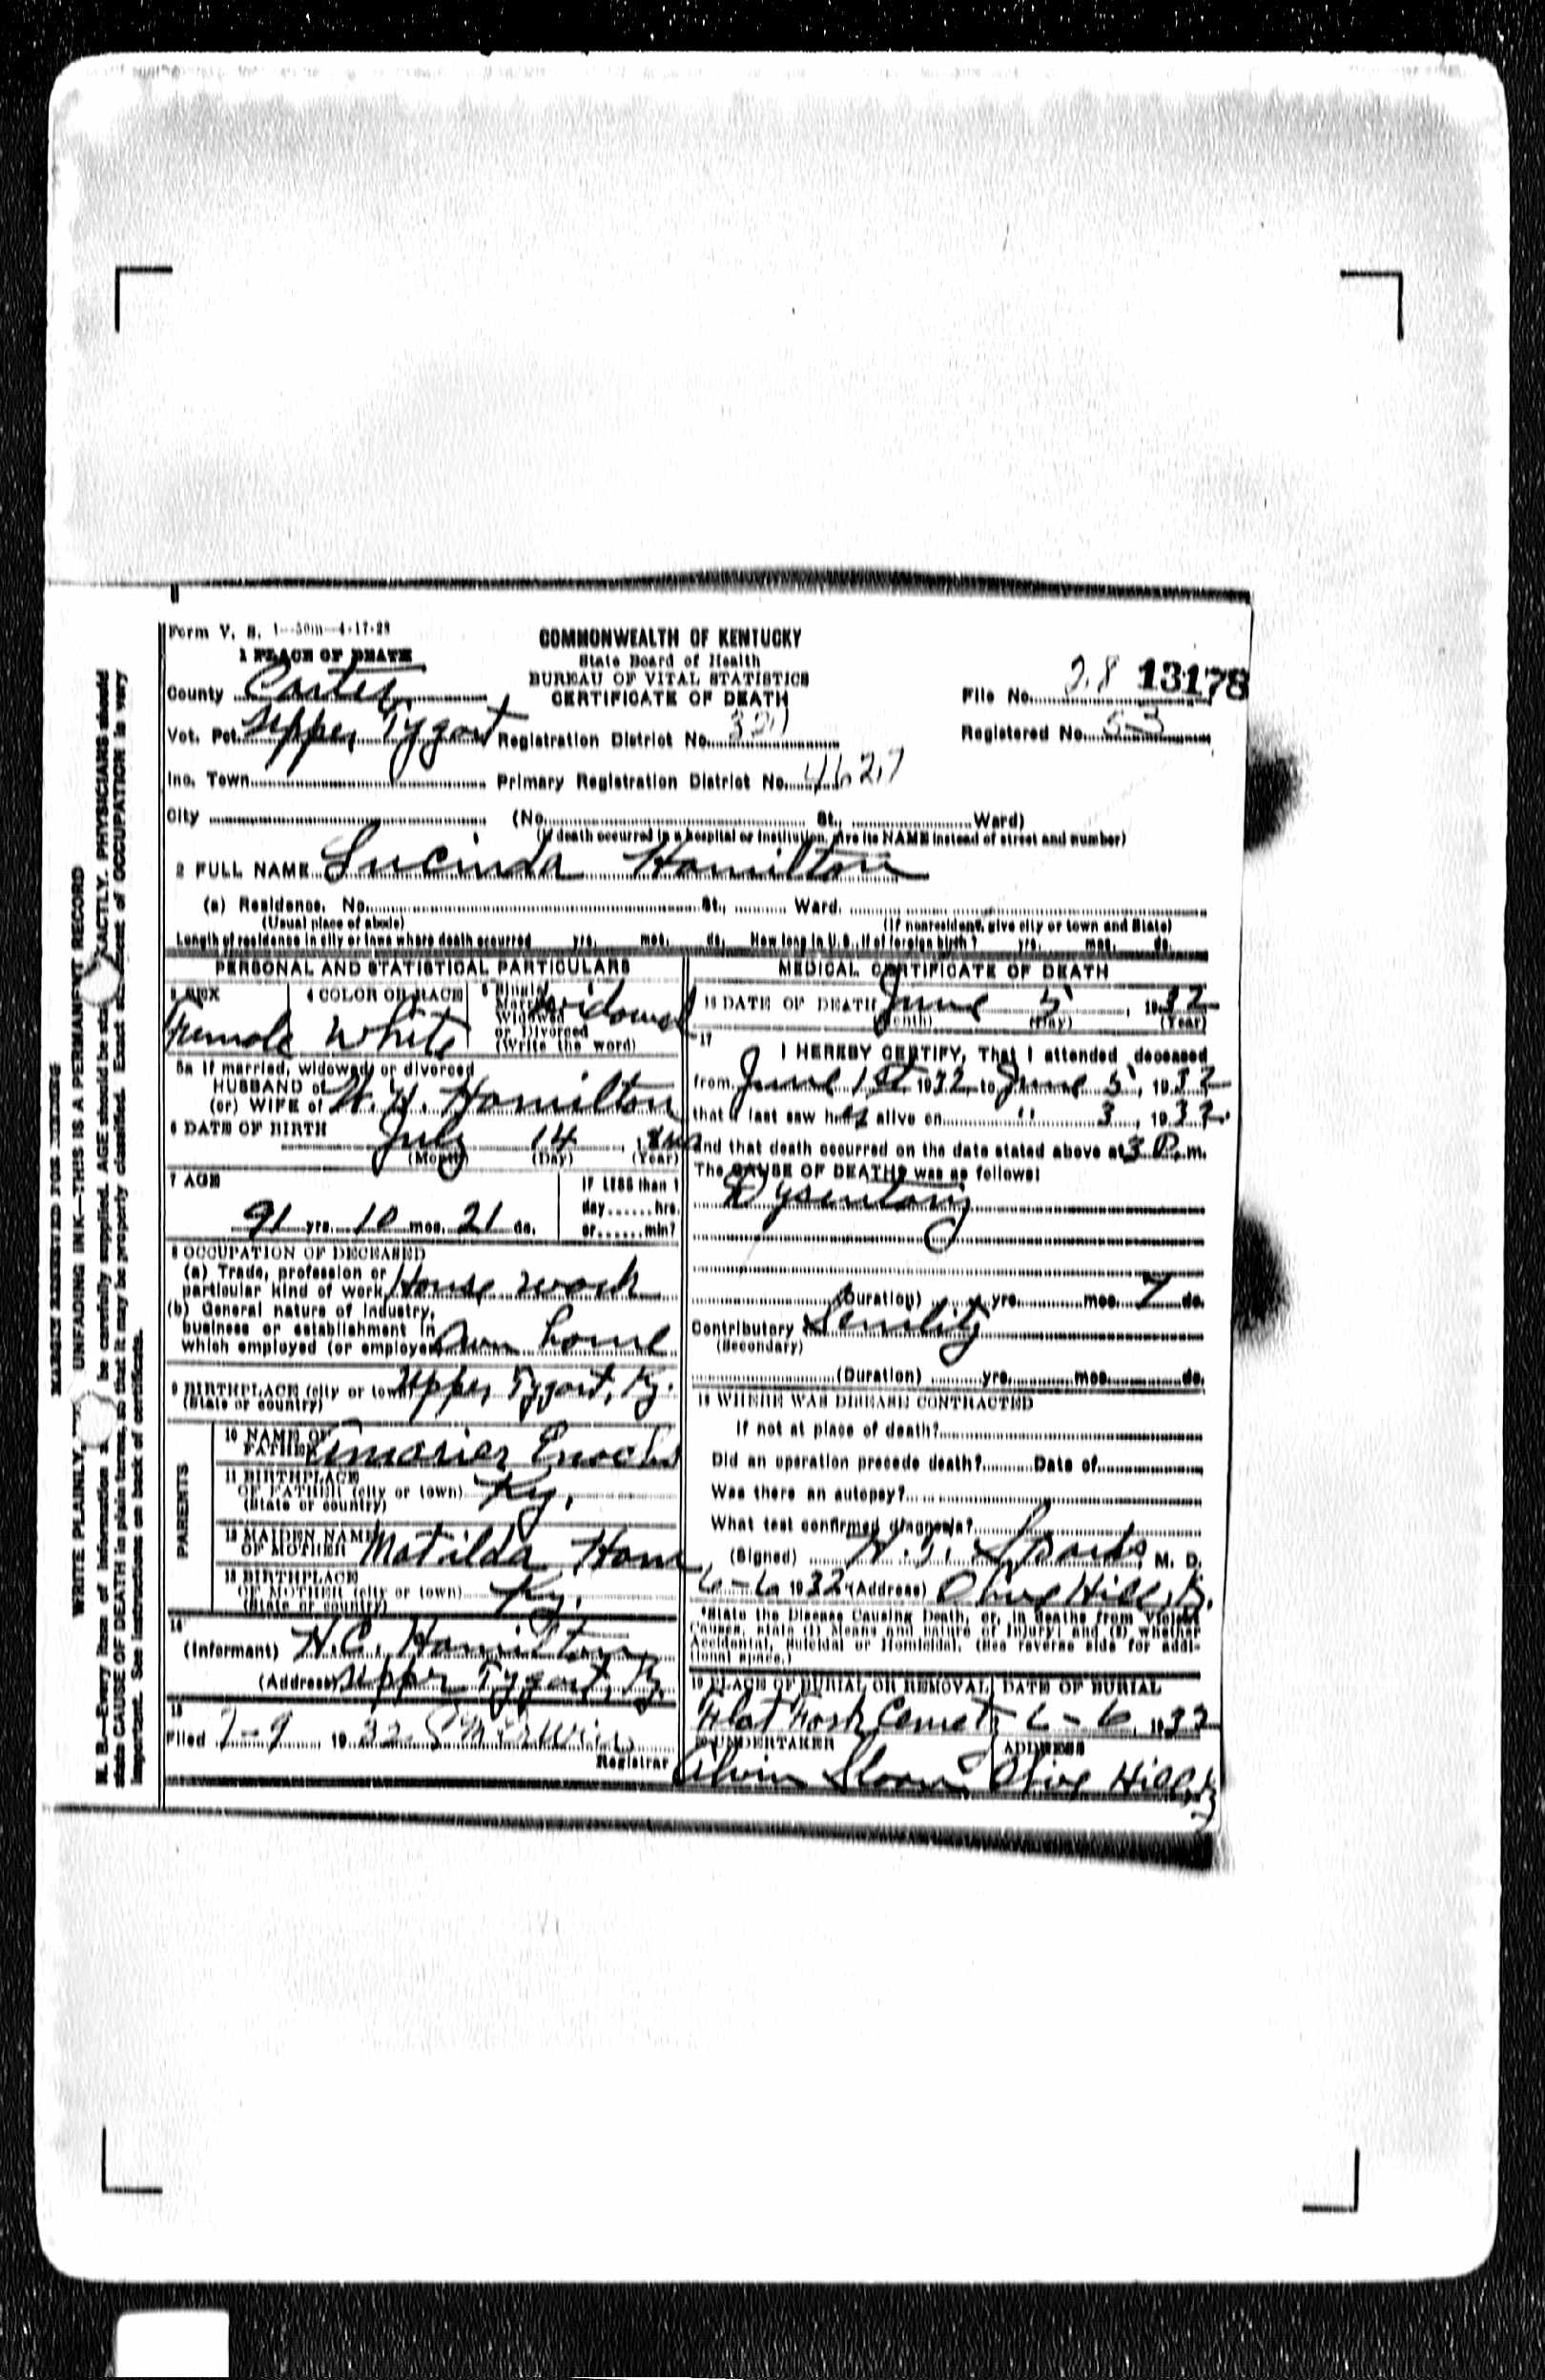 Form V. S. 1-50m-4-17-28
1 PLACE OF DEATH
COMMONWEALTH OF KENTUCKY
State Board of Health
BUREAU OF VITAL STATISTICS
CERTIFICATE OF DEATH
County Carter
File No. 28 13178
Vot. Pct. Upper Tygart Registration District No.
Registered No. 53
Inc. Town Primary Registration District No.
City (No. St., Ward)
(If death occurred in a hospital or institution, give its NAME instead of street and number)
2 FULL NAME Lucinda Hamilton
(a) Residence. No. St., Ward.
(Usual place of abode) (If nonresident, give city or town and State)
Length of residence in city or town where death occurred yrs. mos. ds. How long in U.S., if of foreign birth? yrs. mos. ds.
PERSONAL AND STATISTICAL PARTICULARS
3 SEX 4 COLOR OR RACE 5 Single
Married
Widowed
or Divorced
(Write the word)
Female White Widowed
5a If married, widowed, or divorced
HUSBAND of
(or) WIFE of W. H. Hamilton
6 DATE OF BIRTH July 14, 1840
(Month) (Day) (Year)
7 AGE
91 yrs. 10 mos. 21 ds.
IF LESS than 1
day hrs.
or min?
8 OCCUPATION OF DECEASED
(a) Trade, profession or
particular kind of work House work
(b) General nature of industry,
business or establishment in
which employed (or employer) Own home
9 BIRTHPLACE (city or town) Upper Tygart, Ky.
(State or country)
PARENTS
10 NAME OF
FATHER Enochs
11 BIRTHPLACE
OF FATHER (city or town) Ky.
(State or country)
12 MAIDEN NAME
OF MOTHER Matilda Ham
13 BIRTHPLACE
OF MOTHER (city or town) Ky.
(State or country)
14
(Informant) H.C. Hamilton
(Address) Upper Tygart, Ky.
15
Filed 7-9 1932
Registrar
MEDICAL CERTIFICATE OF DEATH
16 DATE OF DEATH June 5, 1932
(Month) (Day) (Year)
17
I HEREBY CERTIFY, That I attended deceased
from June 1st 1932 to June 5, 1932
that I last saw her alive on " 3, 1932.
and that death occurred on the date stated above at 3 P. m.
The CAUSE OF DEATH* was as follows:
Dysentary
(Duration) yrs. mos. 7 ds.
Contributory Senility
(Secondary)
(Duration) yrs. mos. ds.
18 WHERE WAS DISEASE CONTRACTED
If not at place of death?
Did an operation precede death? Date of
Was there an autopsy?
What test confirmed diagnosis?
(Signed) Sparks, M. D.
6-6 1932 (Address) Olive Hill, Ky.
*State the Disease Causing Death, or, in deaths from Violent
Causes, state (1) Means and Nature of Injury; and (2) whether
Accidental, Suicidal or Homicidal. (See reverse side for addi-
tional space.)
19 PLACE OF BURIAL OR REMOVAL DATE OF BURIAL
Flat Fork Cemet. 6-6, 1932
20 UNDERTAKER ADDRESS
Alvin Sloan Olive Hill, Ky
MARGIN RESERVED FOR BINDING
WRITE PLAINLY, UNFADING INK—THIS IS A PERMANENT RECORD
N. B.—Every item of information be carefully supplied. AGE should be EXACTLY. PHYSICIANS should
state CAUSE OF DEATH in plain terms, so that it may be properly classified. Exact statement of OCCUPATION is very
important. See instructions on back of certificate.